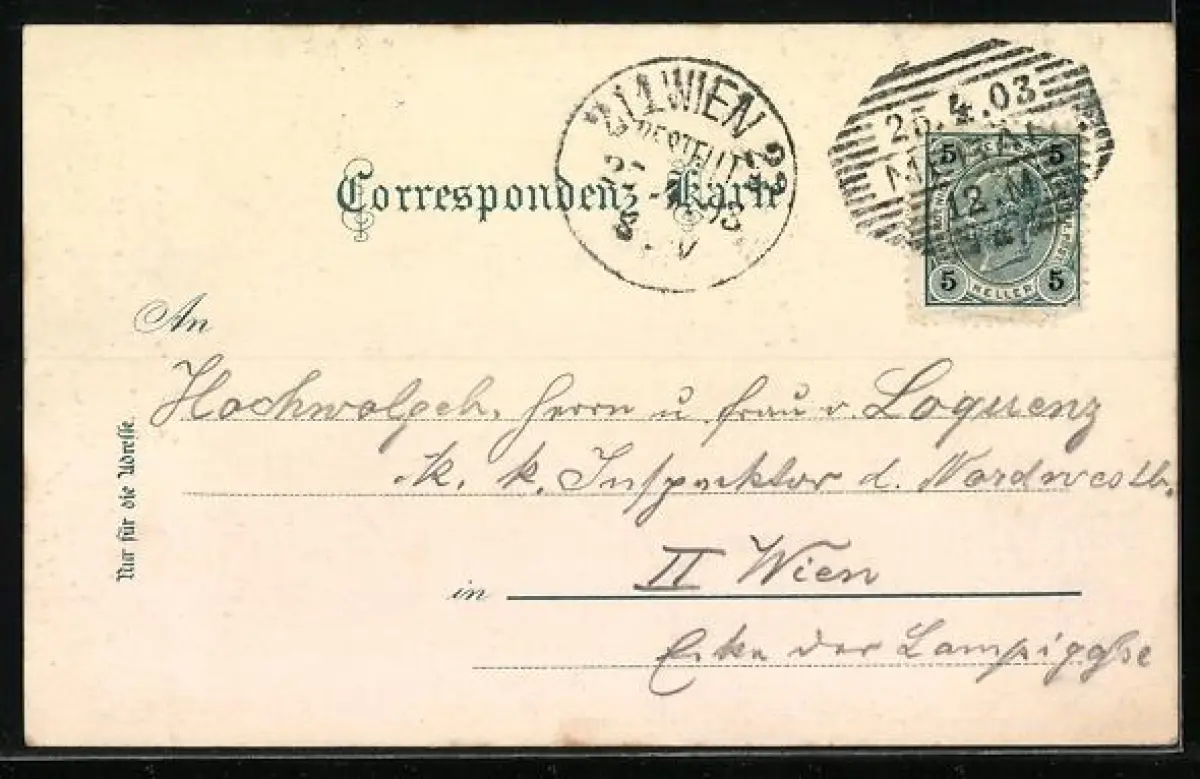 WIEN
BESTELLT
25.4.03
12.M
Correspondenz-Karte
5 5
5 HELLER 5
An
Hochwolgeb. Herrn u Frau v. Loquenz
k. k. Inspektor d. Nordwestb.
in II Wien
Ecke der Lampiggsse
Nur für die Adresse.